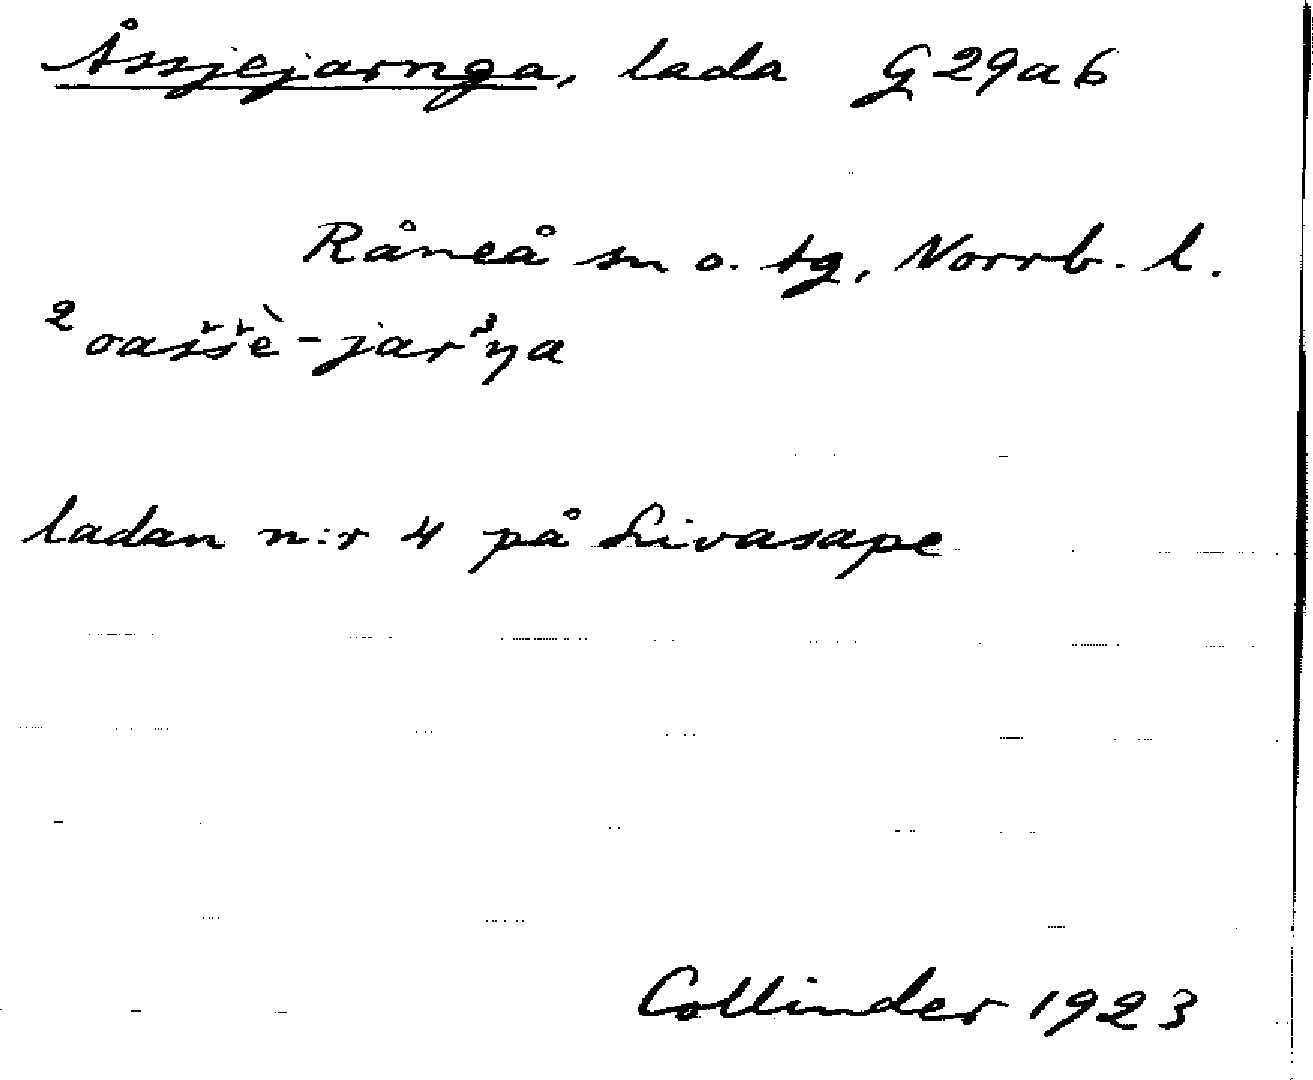 Åssjejarnga, lada G 29a6
Råneå sn o. tg, Norrb. l.
²oašš̀e-jarᵌŋa
ladan n:r 4 på Livasape
Collinder 1923